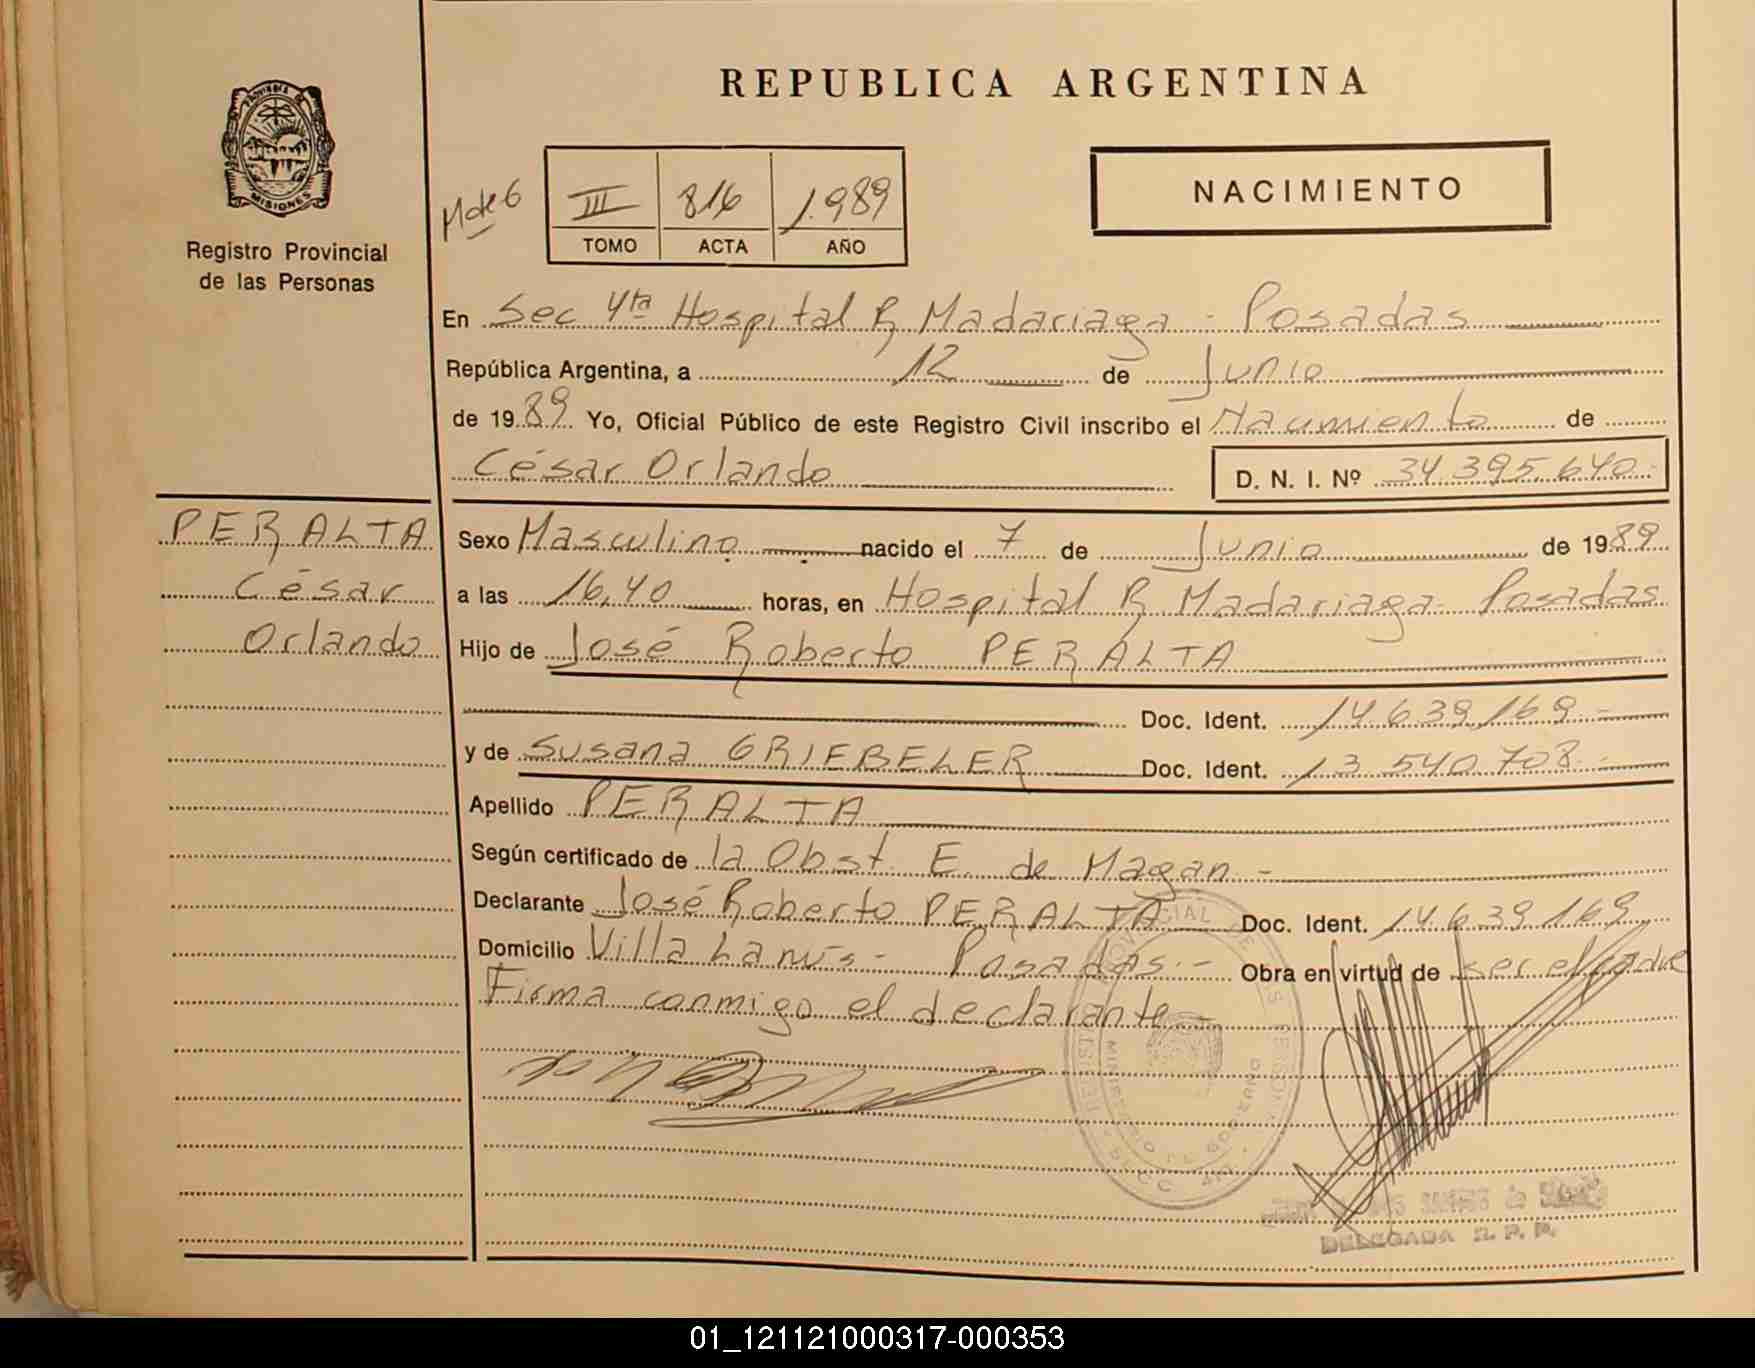 REPUBLICA ARGENTINA
PROVINCIA DE MISIONES
Registro Provincial
de las Personas
III 816 1.989
TOMO ACTA AÑO
NACIMIENTO
En Sec 4ta Hospital R Madariaga - Posadas
República Argentina, a 12 de Junio
de 1989 Yo, Oficial Público de este Registro Civil inscribo el Nacimiento de
César Orlando D. N. I. Nº 34.395.640.-
PERALTA
César
Orlando
Sexo Masculino nacido el 7 de Junio de 1989
a las 16,40 horas, en Hospital R. Madariaga - Posadas
Hijo de José Roberto PERALTA
Doc. Ident. 14.639.169.-
y de Susana GRIEBELER Doc. Ident. 13.540.708.-
Apellido PERALTA
Según certificado de la Obst. E. de Magan -
Declarante José Roberto PERALTA Doc. Ident. 14.639.169
Domicilio Villa Lanús - Posadas.- Obra en virtud de ser el padre
Firma conmigo el declarante
DELEGADA R. P. P.
01_121121000317-000353